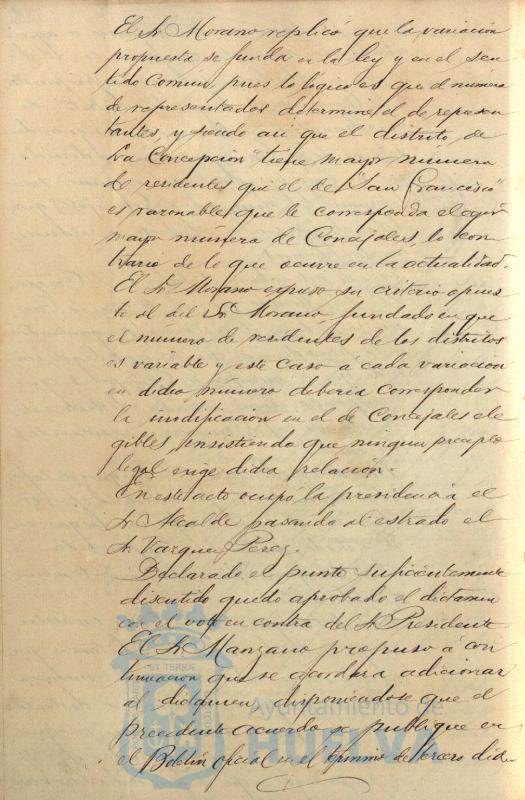 El Sr Morano replicó que la variación
propuesta se funda en la ley y en el sen
tido comun, pues lo lógico es que el número
de representados determine el de represen
tantes, y siendo asi que el distrito de
"La Concepcion" tiene mayor número
de residentes que el de "San Francisco"
es razonable que le corresponda elegir
mayor número de Concejales, lo con
trario de lo que ocurre en la actualidad.
El Sr Morano expuso su criterio opues
to al del Sr Morano, fundado en que
el numero de residentes de los distritos
es variable y este caso á cada variacion
en dicho número deberia corresponder
la modificacion en el de Concejales ele
gibles, insistiendo que ningun precepto
legal exige dicha relación.
En este acto ocupó la presidencia el
Sr Alcalde pasando al estrado el
Sr Vazquez Perez.
Declarado el punto suficientemente
discutido quedo aprobado el dictamen
con el voto en contra del Sr Presidente
El Sr Manzano propuso á con
tinuacion que se acordara adicionar
al dictamen disponiendose que el
precedente acuerdo se publique en
el Boletin oficial en el termino de tercero dia
Ayuntamiento de
HUELVA